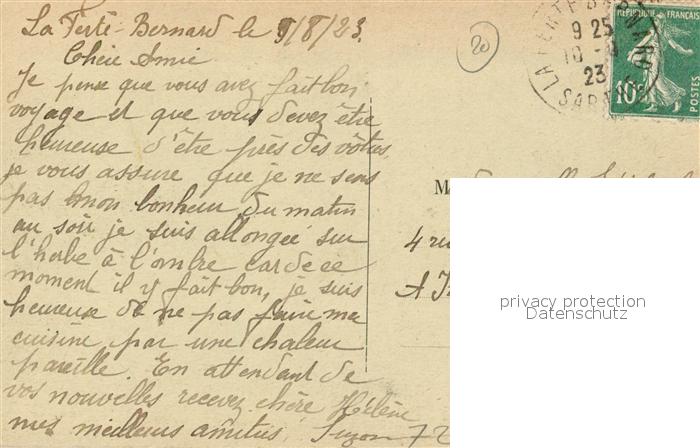 La Ferté-Bernard le 9/8/23.
Chère Amie
Je pense que vous avez fait bon
voyage et que vous devez être
heureuse d'être près des vôtres,
je vous assure que je ne sens
pas mon bonheur du matin
au soir je suis allongée sur
l'herbe à l'ombre car de ce
moment il y fait bon, je suis
heureuse de ne pas faire ma
cuisine par une chaleur
pareille. En attendant de
vos nouvelles recevez chère Hélène
mes meilleurs amitiés. Suzon
20
9 25
10-8
23
SARTHE
RÉPUBLIQUE FRANÇAISE
10c
POSTES
M
4 ru
A
privacy protection
Datenschutz